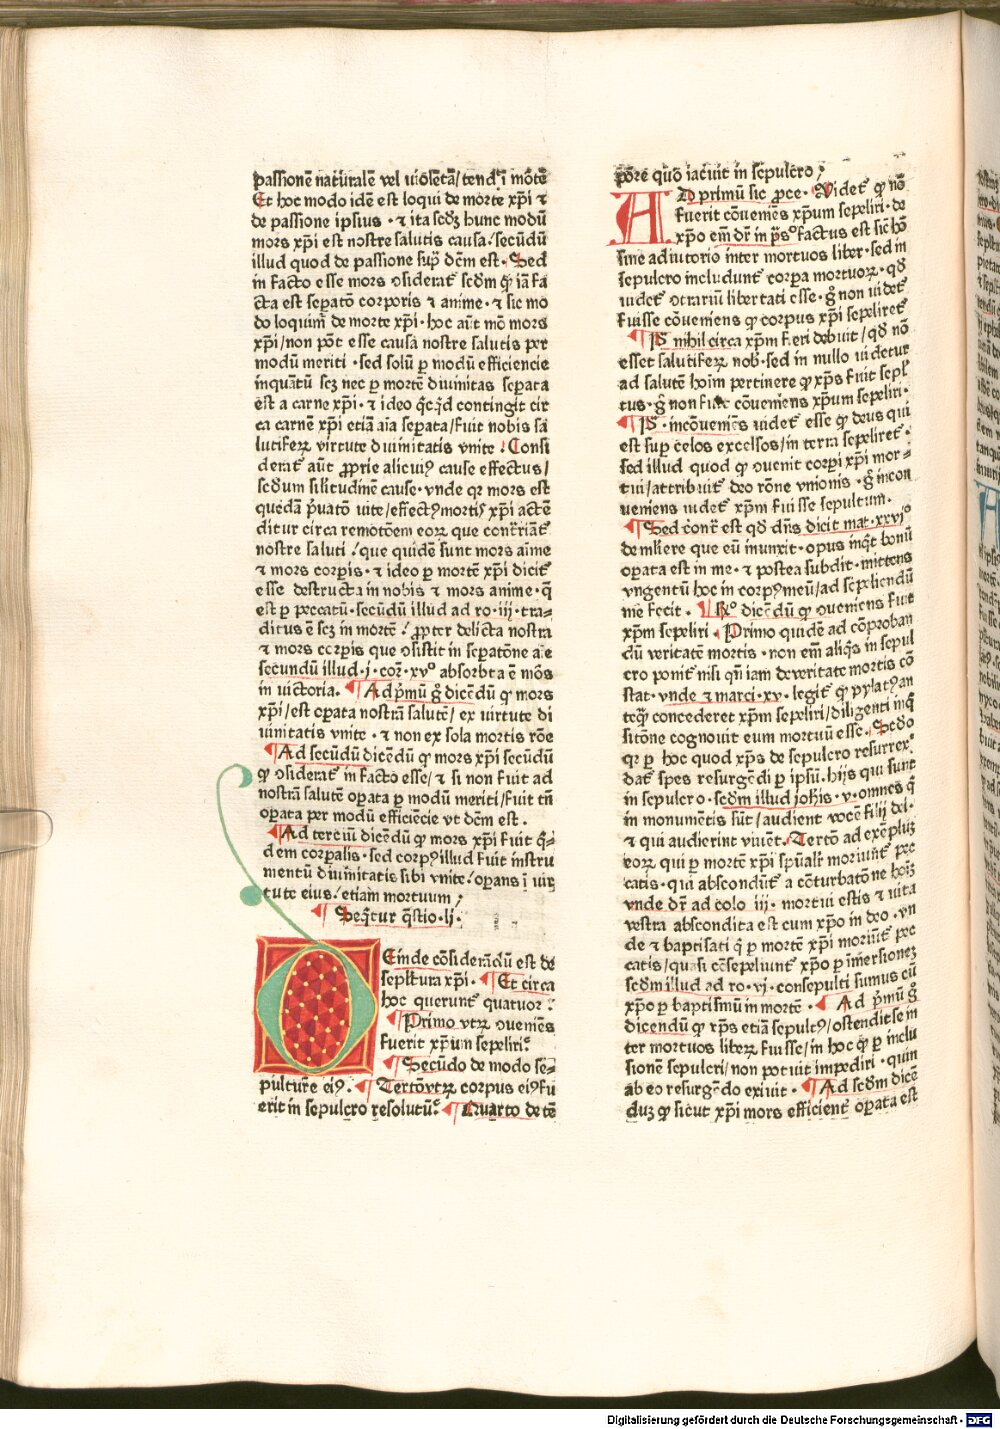 passionē naturalē vel uiolētā/tendit̄ ī mōtē
Et hoc modo idē est loqui de morte xp̄i ⁊
de passione ipsius · ⁊ ita scdꝫ hunc modū
mors xp̄i est nostre salutis causa/secūdū
illud quod de passione supͣ dēm est · Sed
in facto esse mors ↄsiderat̄ scdm ꝙ iā fa
cta est sepatō corporis ⁊ anime · ⁊ sic mo
do loquim̄ de morte xp̄i · hoc aūt mō mors
xp̄i/non pōt esse causa nostre salutis per
modū meriti · sed solū ꝑ modū efficiencie
inquātū scꝫ nec ꝑ mortē diuinitas seꝑata
est a carne xp̄i · ⁊ ideo qͥcqͥd contingit cir
ca carnē xp̄i etiā aīa seꝑata/fuit nobis sa
lutifeꝝ virtute diuinitatis vnite · Consi
derat̄ aūt ꝓprie alicuiꝰ cause effectus/
scdum silitudinē cause · vnde qꝛ mors est
quedā pͥuatō uite/effectꝰ mortis xp̄i actē
ditur circa remotōem eoꝝ que contͣriāt̄
nostre saluti/que quidē sunt mors aīme
⁊ mors corpis · ⁊ ideo ꝑ mortē xp̄i dicit̄
esse destructa in nobis ⁊ mors anime · q̄
est ꝑ peccatū · secūdū illud ad ro · iij · tra-
ditus ē scꝫ in mortē/ꝓpter delicta nostra
⁊ mors corpis que ↄsistit in sepatōne aīe
secundū illud · j · coꝝ · xv° absorbta ē mōs
in uictoria. ¶ Ad pͥmū gͦ dicēdū ꝙ mors
xp̄i/est opata nostrā salutē/ex uirtute di
uinitatis vnite · ⁊ non ex sola mortis rōe
¶ Ad secūdū dicēdū ꝙ mors xp̄i secūdū
ꝙ ↄsiderat̄ in facto esse/⁊ si non fuit ad
nostrā salutē opata ꝑ modū meriti/fuit tn̄
opata per modū efficiēcie vt dēm est .
¶ Ad terciū dicēdū ꝙ mors xp̄i fuit qͥ-
dem corpalis · sed corpꝰ illud fuit instru
mentū diuinitatis sibi vnite · opans ī uir
tute eius/etiam mortuum/
¶ Seqͥtur qͦstio · lj ·
Einde cōsiderādū est de
sepltura xp̄i · ¶ Et circa
hoc querunt̄ quatuor:
¶ Primo vtꝝ ↄueniēs
fuerit xp̄um sepeliri:
¶ Secūdo de modo se-
pulture eiꝰ. ¶ Tertōvtꝝ corpus eiꝰ fu
erit in sepulcro resolutū: ¶ Quarto de tē
pore quo iacuit in sepulcro/
AD primū sic ꝓce · Videt̄ ꝙ nō
fuerit cōueniēs xp̄um sepeliri · de
xp̄o em̄ dr̄ in ps° factus est sic hō
sine adiutorio inter mortuos liber · sed in
sepulcro includunt̄ corpa mortuoꝝ · qd̄
uidet̄ ↄtrariū libertati esse · gͦ non uidet̄
fuisse cōueniens ꝙ corpus xp̄i sepeliret̄
¶ Pͣ · nihil circa xp̄m fieri debuit/qd̄ nō
esset salutifeꝝ nob · sed in nullo uidetur
ad salutē hoīm pertinere ꝙ xp̄s fuit sepl̄
tus · gͦ non fuit cōueniens xp̄um sepeliri ·
¶ Pͣ · incōueniēs uidet̄ esse ꝙ deus qui
est supͣ celos excelsos/in terra sepeliret̄ ·
sed illud quod ꝙ ↄuenit corpi xp̄i mor-
tui/attribuit̄ deo rōne vnionis · gͦ incon
ueniens uidet̄ xp̄m fuisse sepultum.
¶ Sed contͣ est qd̄ dn̄s dicit mat · xxvi°
de mliere que eū inunxit · opus inqͥt bonū
opata est in me · ⁊ postea subdit · mittens
vngentū hoc in corpꝰ meū/ad sepeliendū
me fecit . ¶ R° dicēdū ꝙ ↄueniens fuit
xp̄m sepeliri · Primo quidē ad cōproban
dū veritatē mortis · non em̄ aliqͥs in sepul
cro ponit̄ nisi qn̄ iam de veritate mortis cō
stat · vnde ⁊ marci · xv · legit̄ ꝙ pylatꝰ an
teqͣꝫ concederet xp̄m sepeliri/diligenti inqͥ
sitōne cognouit eum mortuū esse · Scdo
qꝛ ꝑ hoc quod xp̄s de sepulcro resurrex:
dat̄ spes resurgēdi ꝑ ipsū · hijs qui sunt
in sepulcro · scdm illud joh̄is · v · omnes qͥ
in monumētis sūt/audient vocē filij dei ·
⁊ qui audierint viuēt · Tertō ad exēpluꝫ
eoꝝ qui ꝑ mortē xp̄i spūalit̄ moriunt̄ pec
catis · qui abscondūt̄ a cōturbatōne hoīꝫ
vnde dr̄ ad colo iij · mortui estis ⁊ uita
vestra abscondita est cum xp̄o in deo · vn
de ⁊ baptisati qͥ ꝑ mortē xp̄i moriūt̄ pec
catis/quasi cōsepeliunt̄ xp̄o ꝑ īmersioneꝫ
scdm illud ad ro · vj · consepulti sumus cū
xp̄o ꝑ baptismū in mortē · ¶ Ad pͥmū gͦ
dicendū ꝙ xp̄s etiā sepultꝰ/ostendit se in
ter mortuos libeꝝ fuisse/in hoc ꝙ ꝑ inclu
sionē sepulcri/non potuit impediri · quin
ab eo resurgēdo exiuit · ¶ Ad scdm dicē
duꝫ ꝙ sicut xp̄i mors efficient̄ opata est
Digitalisierung gefördert durch die Deutsche Forschungsgemeinschaft - DFG